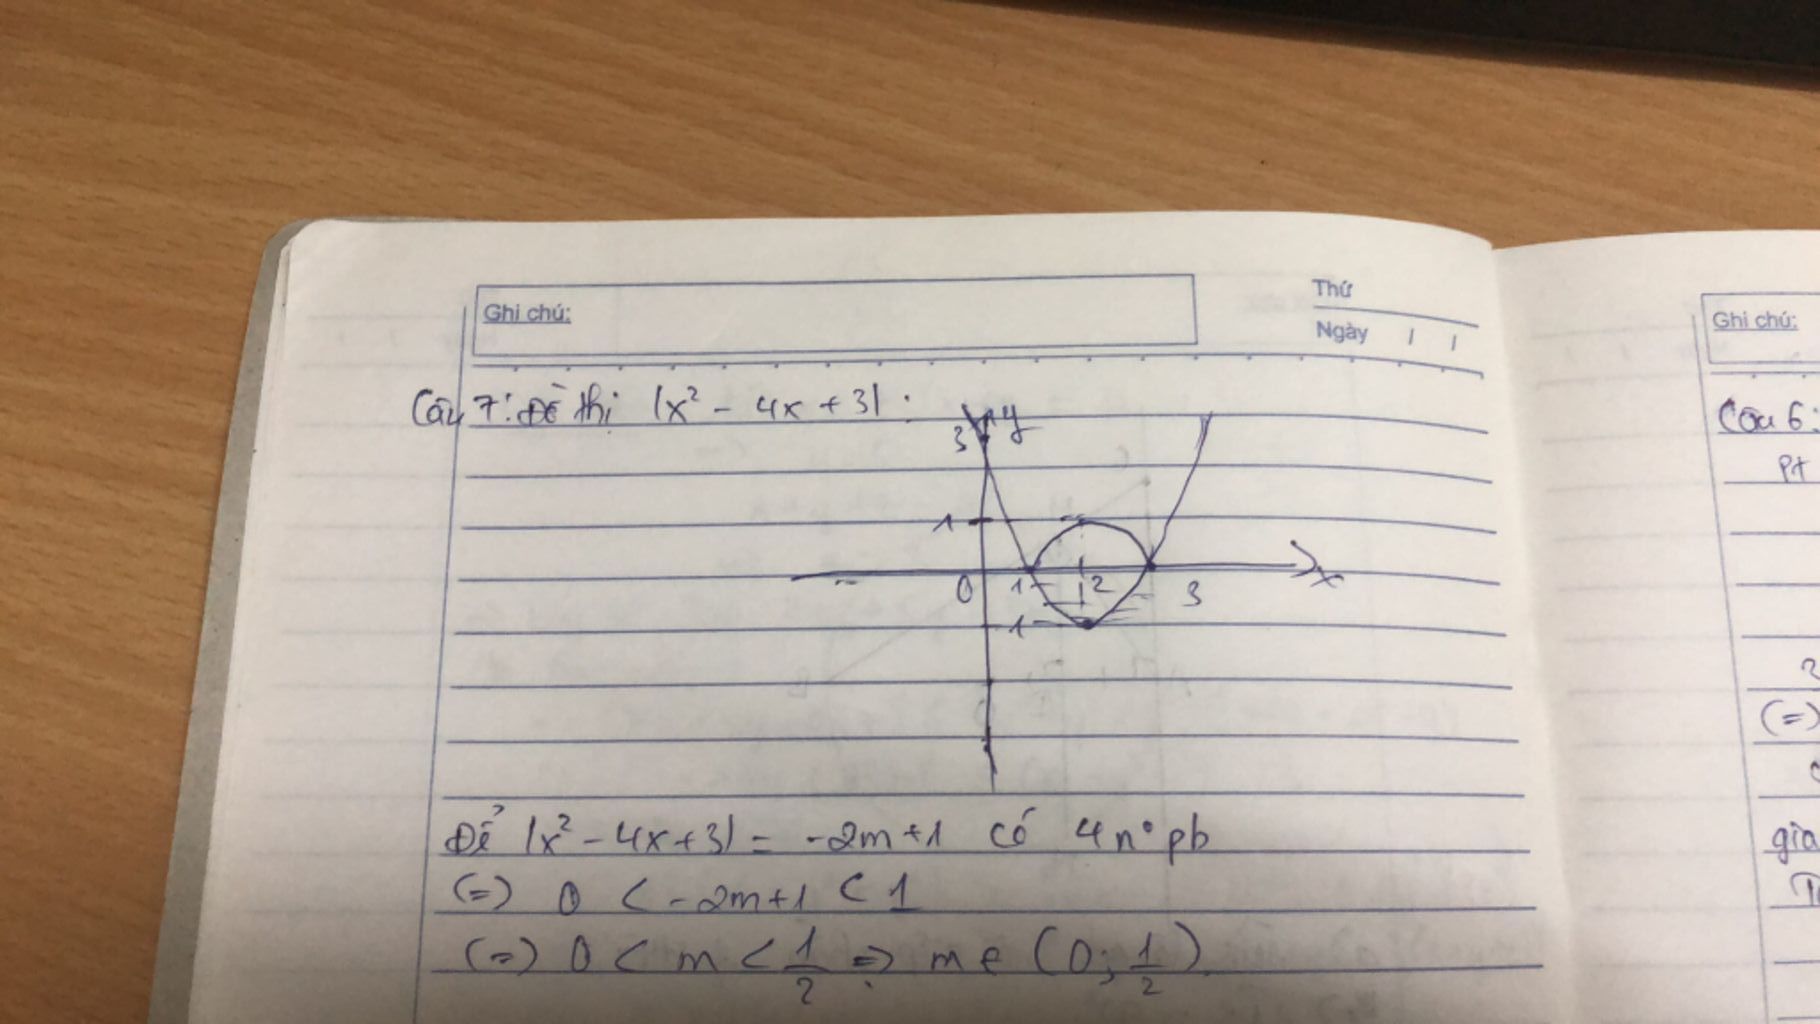 Ghi chú:
Thứ
Ngày / /
Câu 7: Đồ thị |x² - 4x + 3| :
y
3
1
0 1 2 3 x
-1
Để |x² - 4x + 3| = -2m + 1 có 4 n° pb
(=) 0 < -2m + 1 < 1
(=) 0 < m < 1/2 => m ∈ (0; 1/2)
Ghi chú:
Câu 6:
Pt
(=)